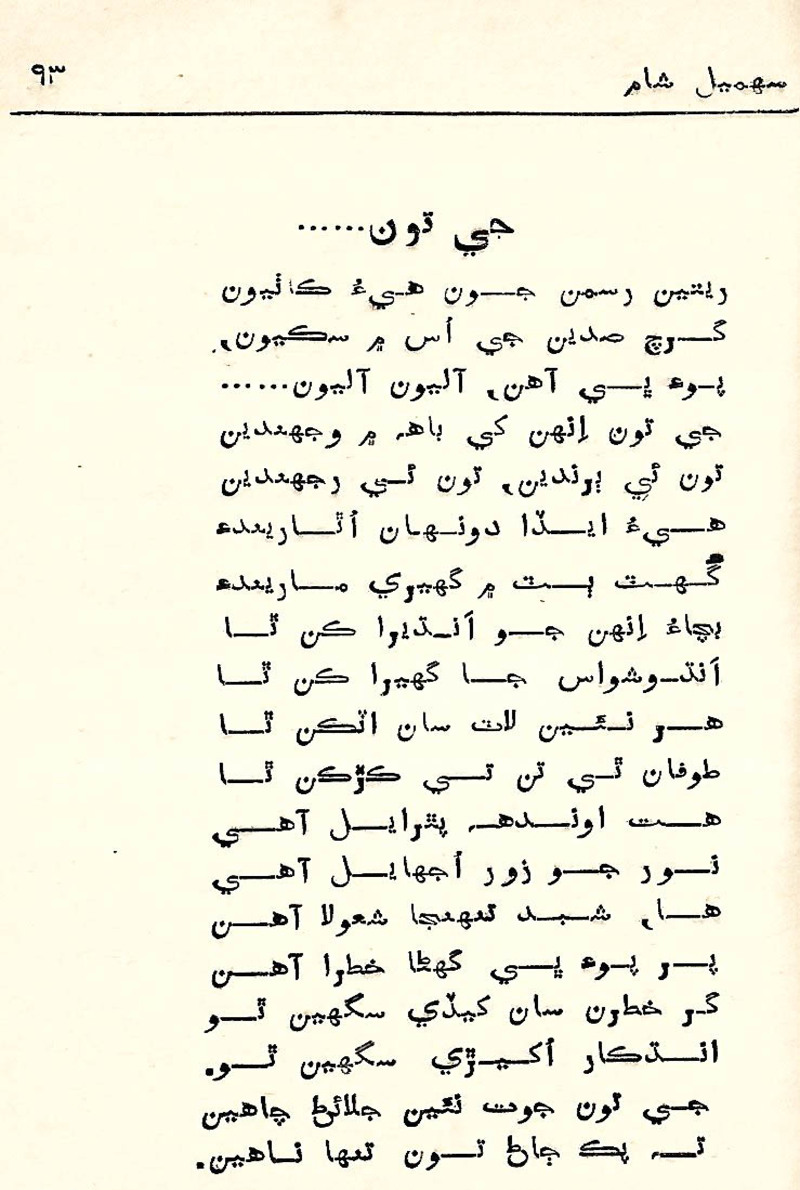 سهميل شام
۹۳
جي تون......
ريتين رسمن جون هيءُ ڪاٺيون
گرچ صدين جي اُس ۾ سڪيون،
پوءِ ڀي آهن، آليون آليون......
جي تون اِنهن کي باهه ۾ وجهندين
تون ئي ٻرندين، تون ئي رجهندين
هيءُ ايڏا دونهان اُٿاريندءِ
گُهٽ ٻٽ ۾ گهيري ماريندءِ
بچاءُ اِنهن جو اَنڌيرا ڪن ٿا
اَنڌوشواس جا گهيرا ڪن ٿا
هر نئين لاٽ سان اٽڪن ٿا
طوفان ٿي تن تي ڪڙڪن ٿا
هت اونداهه پٿرايل آهي
نور جو زور اُجهايل آهي
ها، شبد تنهنجا شعولا آهن
پر پوءِ ڀي گهڻا خطرا آهن
گر خطرن سان کيڏي سگهين ٿو
انڌڪار اُکيڙي سگهين ٿو.
جي تون جوت نئين جلائڻ چاهين
ته پڪ ڄاڻ تون تنها ناهين.